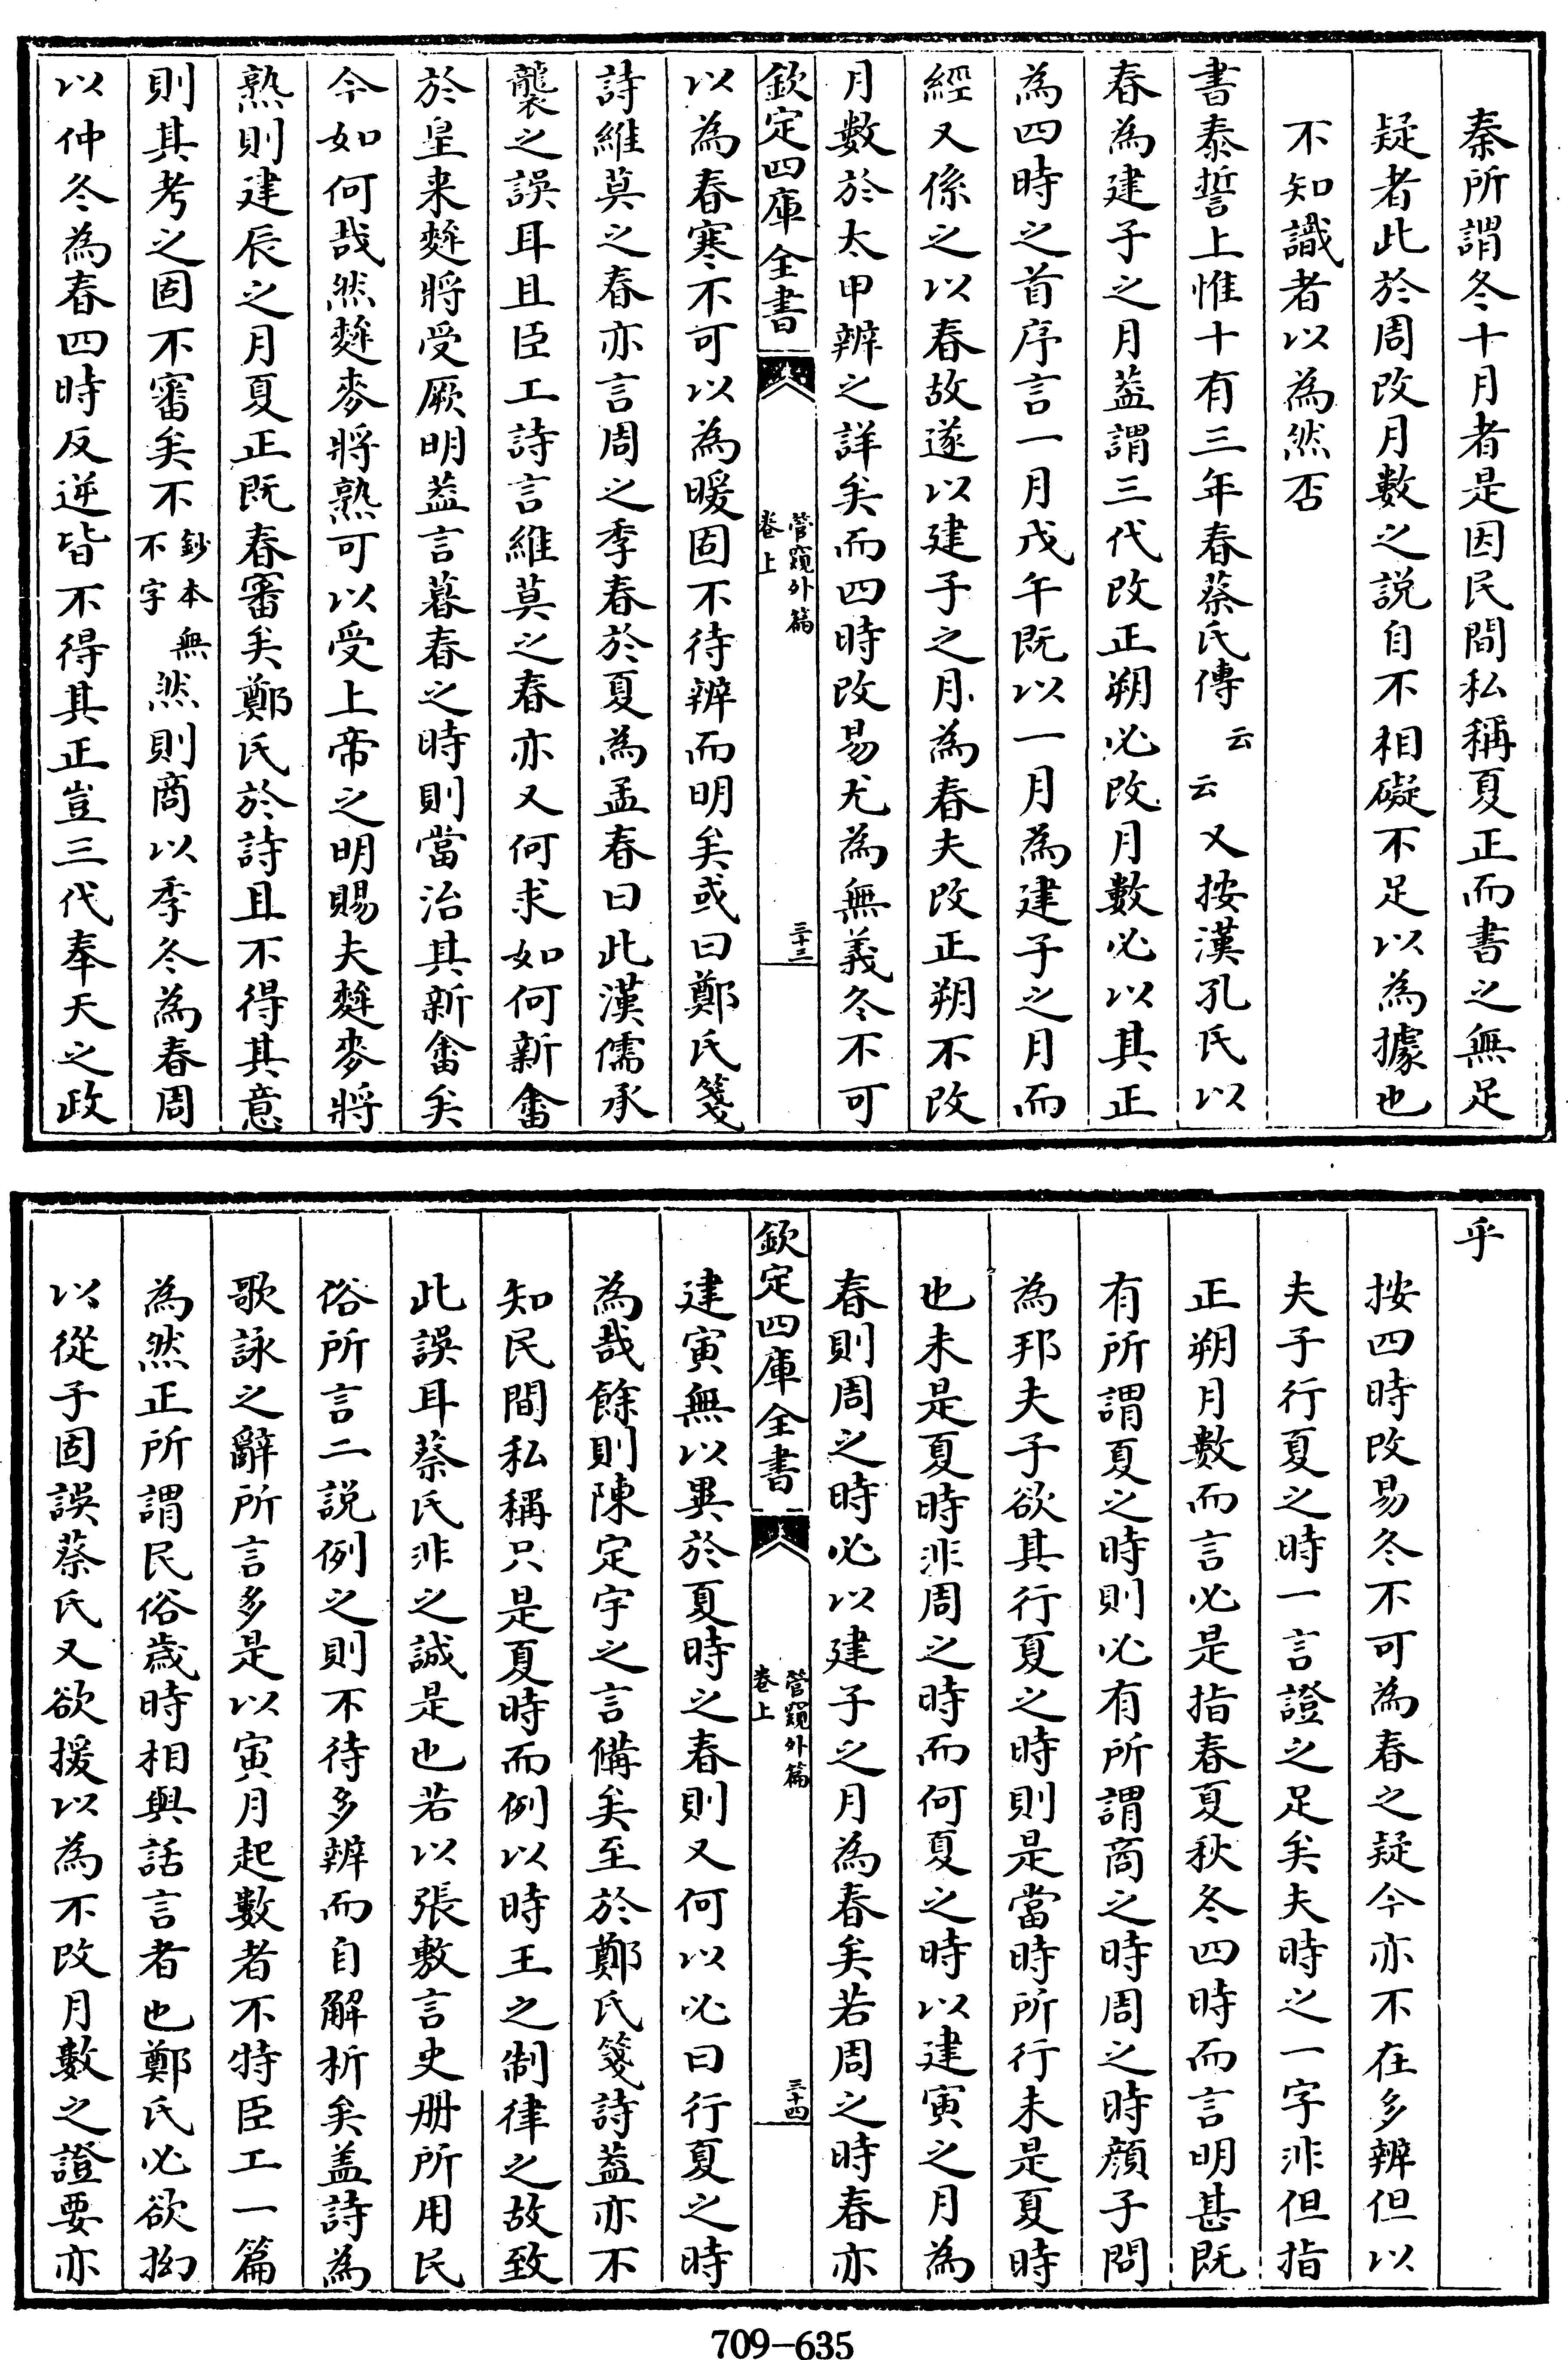 秦所謂冬十月者是因民間私稱夏正而書之無足
疑者此於周改月數之説自不相礙不足以為據也
不知識者以為然否
書泰誓上惟十有三年春蔡氏傳云云又按漢孔氏以
春為建子之月葢謂三代改正朔必改月數必以其正
為四時之首序言一月戊午既以一月為建子之月而
經又係之以春故遂以建子之月為春夫改正朔不改
月數於太甲辨之詳矣而四時改易尤為無義冬不可
欽定四庫全書
管窺外篇
卷上
三十三
以為春寒不可以為暖固不待辨而明矣或曰鄭氏箋
詩維莫之春亦言周之季春於夏為孟春曰此漢儒承
襲之誤耳且臣工詩言維莫之春亦又何求如何新畬
於皇来麰將受厥明葢言暮春之時則當治其新畬矣
今如何哉然麰麥將熟可以受上帝之明賜夫麰麥將
熟則建辰之月夏正既春審矣鄭氏於詩且不得其意
則其考之固不審矣不鈔本無不字然則商以季冬為春周
以仲冬為春四時反逆皆不得其正豈三代奉天之政
乎
按四時改易冬不可為春之疑今亦不在多辨但以
夫子行夏之時一言證之足矣夫時之一字非但指
正朔月數而言必是指春夏秋冬四時而言明甚既
有所謂夏之時則必有所謂商之時周之時顔子問
為邦夫子欲其行夏之時則是當時所行未是夏時
也未是夏時非周之時而何夏之時以建寅之月為
春則周之時必以建子之月為春矣若周之時春亦
欽定四庫全書
管窺外篇
卷上
三十四
建寅無以異於夏時之春則又何以必曰行夏之時
為哉餘則陳定宇之言備矣至於鄭氏箋詩葢亦不
知民間私稱只是夏時而例以時王之制律之故致
此誤耳蔡氏非之誠是也若以張敷言史册所用民
俗所言二説例之則不待多辨而自解析矣盖詩為
歌詠之辭所言多是以寅月起數者不特臣工一篇
為然正所謂民俗歲時相與話言者也鄭氏必欲拗
以從子固誤蔡氏又欲援以為不改月數之證要亦
709-635